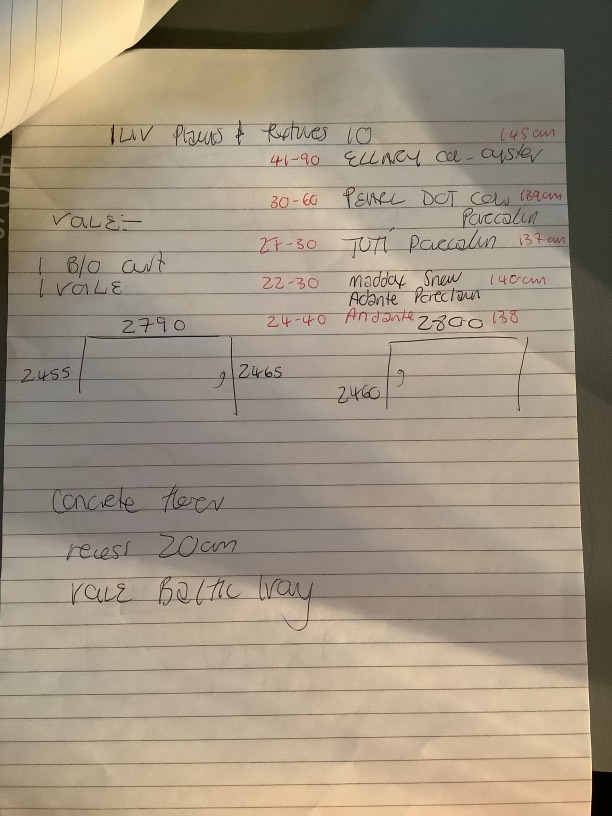 1 LIV Plains & textures 10 145cm
41-90 ELLNEY col - oyster
30-60 PEARL DOT COL 139cm
VALE:- Porcelain
27-30 TUTI Porcelain 137cm
1 B/O curt
1 VALE 22-30 Maddox Snow 140cm
Adante Porcelain
2790 24-40 Andante 2800 138
2455 2465
2460
Concrete
recess 20cm
VALE Baltic Ivay